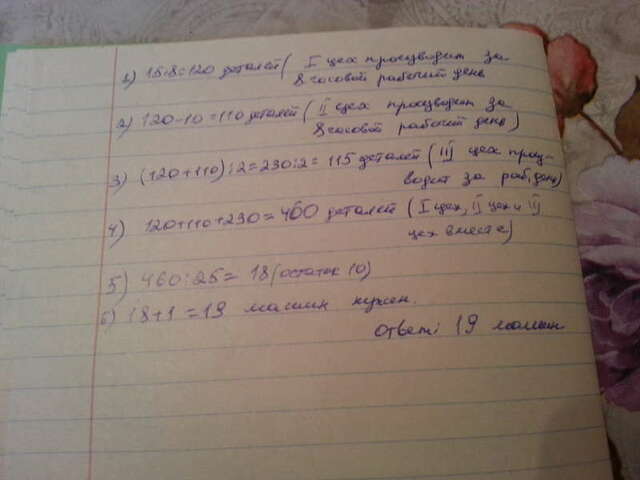 1) 15·8=120 деталей ( I цех прозводит за
8 часовой рабочий день
2) 120-10=110 деталей ( II цех прозводит за
8 часовой рабочий день)
3) (120+110):2=230:2=115 деталей ( III цех проз-
водит за раб.день)
4) 120+110+230=460 деталей ( I цех, II цех и III
цех вместе)
5) 460:25= 18(остаток 10)
6) 18+1=19 машин нужен.
Ответ: 19 машин